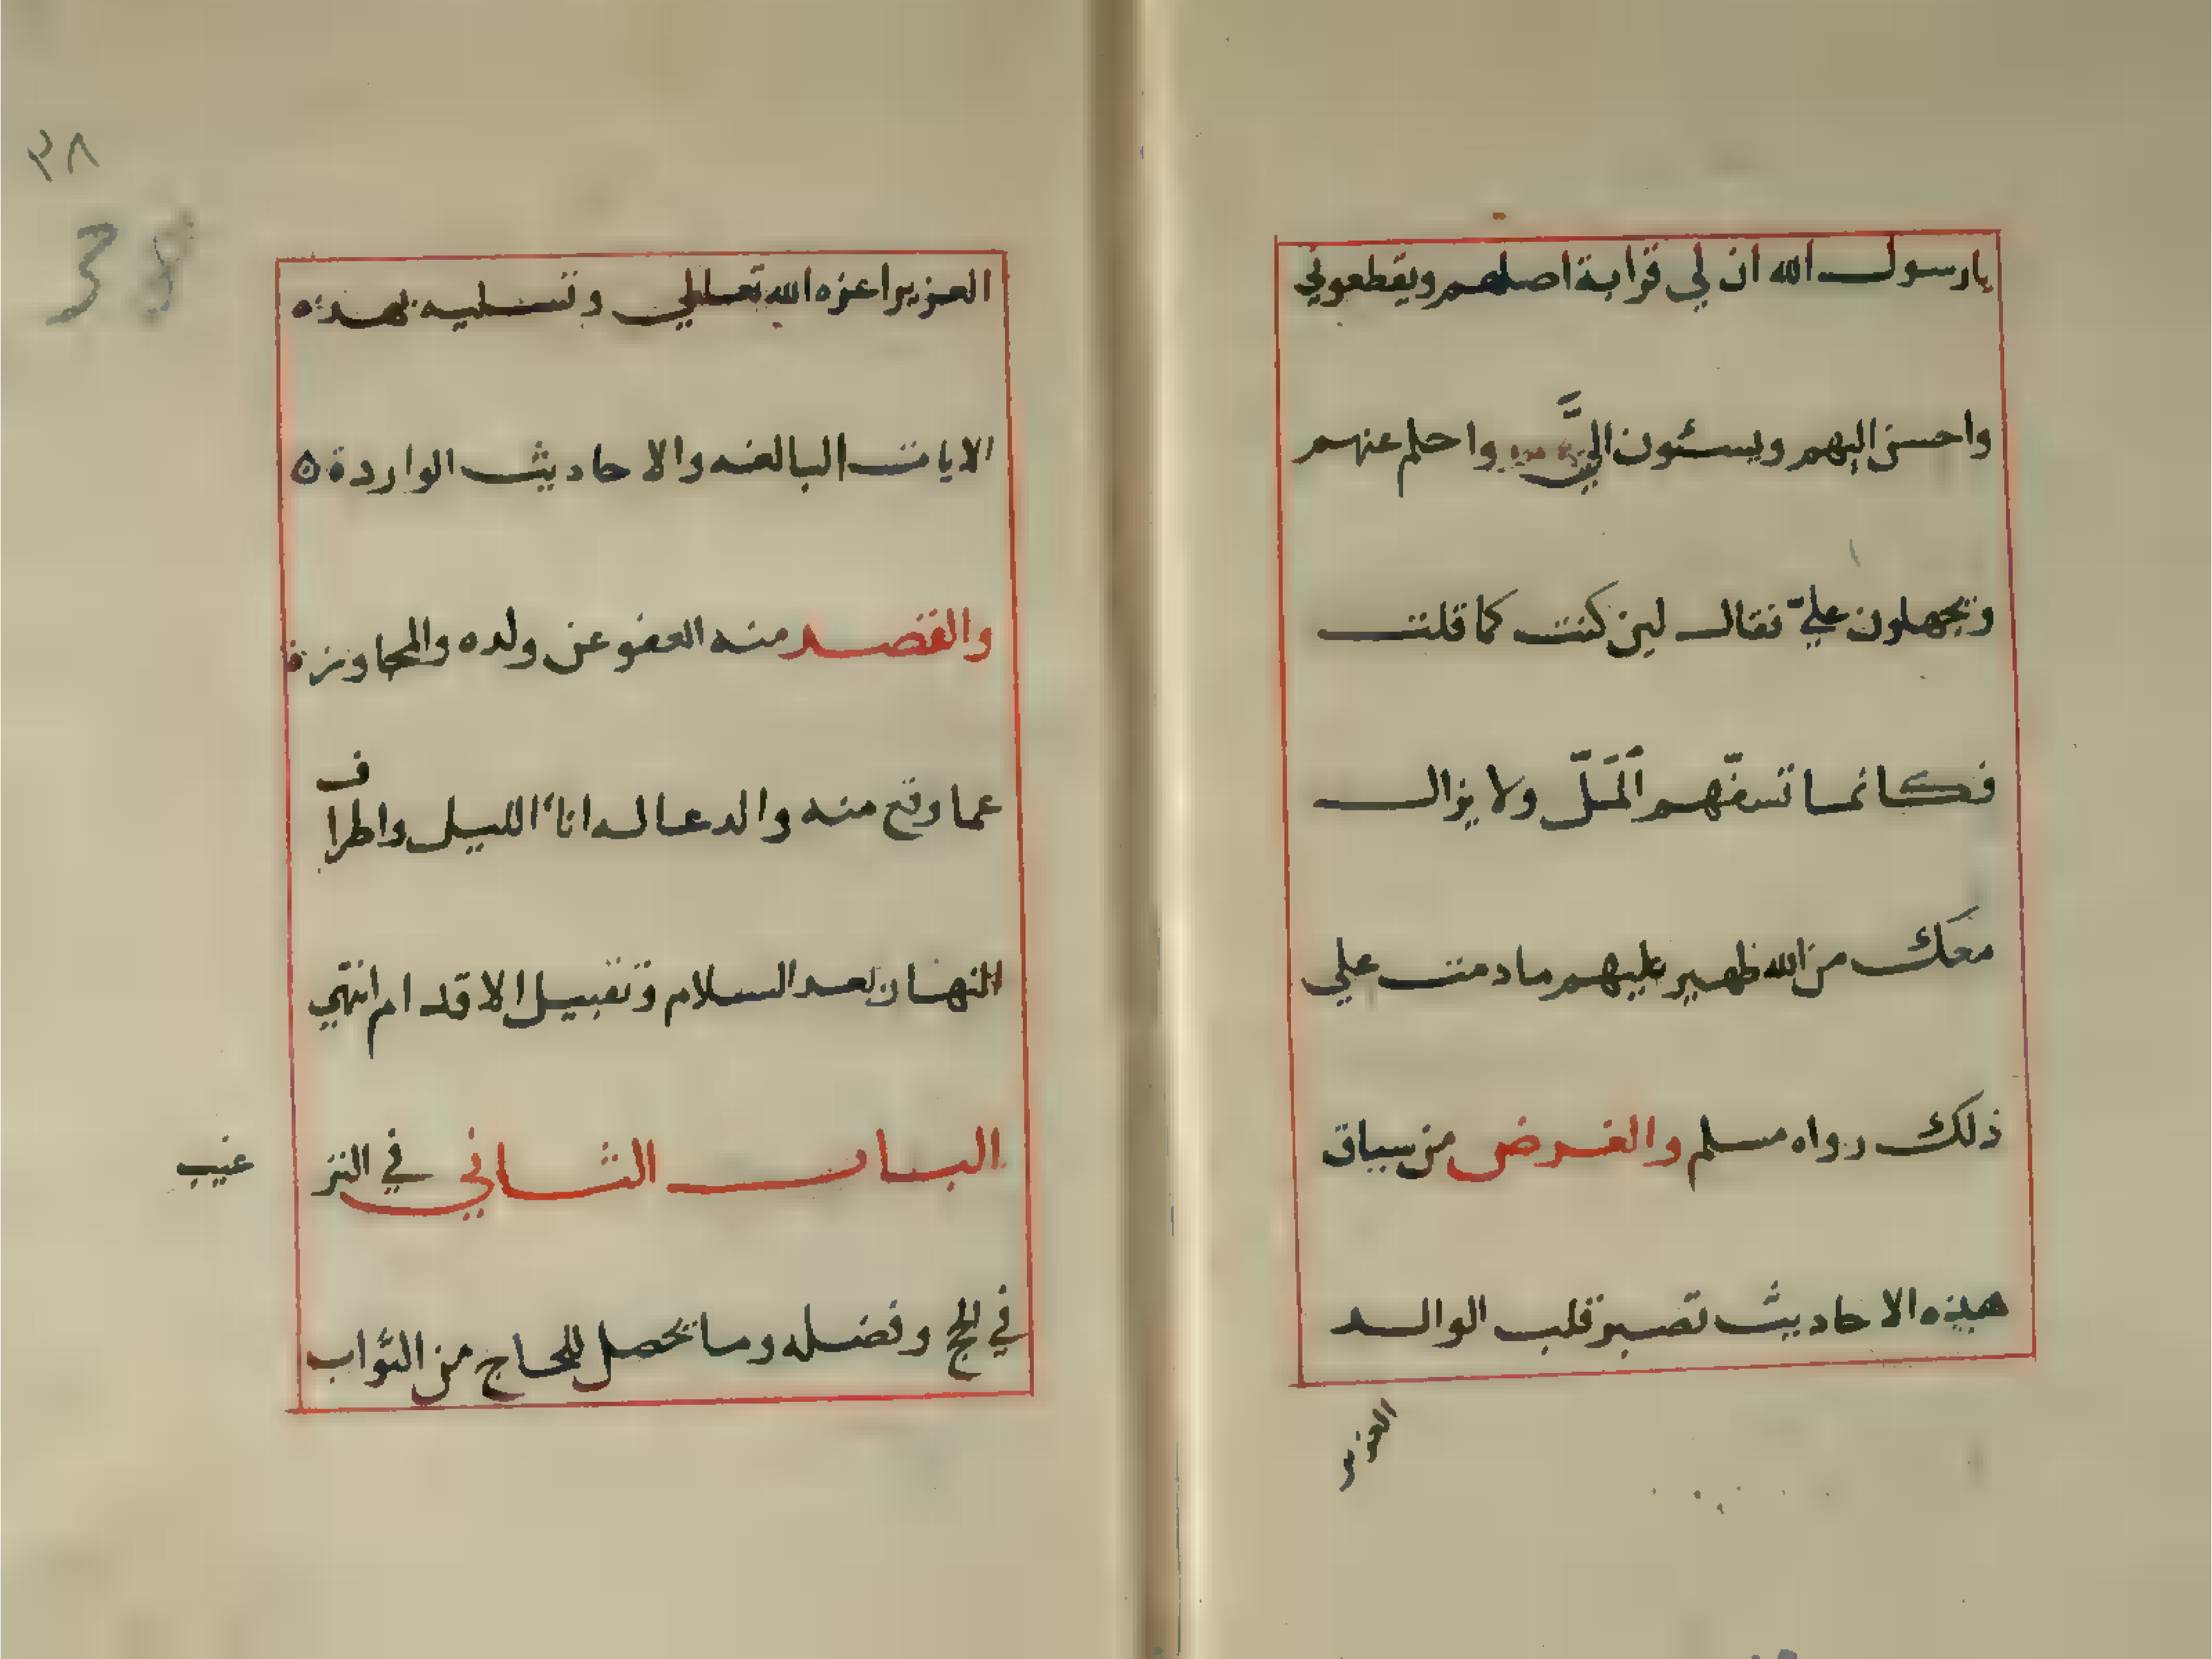 يارسول الله ان لي قرابة اصلهم ويقطعوني
واحسن اليهم ويسئون اليَّ واحلم عنهم
ويجهلون عليّ فقال لين كنت كما قلت
فكانما تسفّهم المَلّ ولا يزال
معك من الله ظهير عليهم مادمت علي
ذلك رواه مسلم والغرض من سياق
هذه الاحاديث تصبر قلب الوالد
العزيز
٣٨
38
العزيز اعزه الله تعالي وتسليه بهذه
الايات البالغه والاحاديث الواردة ه
والقصد منه العفو عن ولده والمجاوزة
عما وقع منه والدعا له اناء الليل واطراف
النهار بعد السلام وتقبيل الاقدام انتهي
الباب الثاني في التر غيب
في الحج وفضله وما يحصل للحاج من الثواب